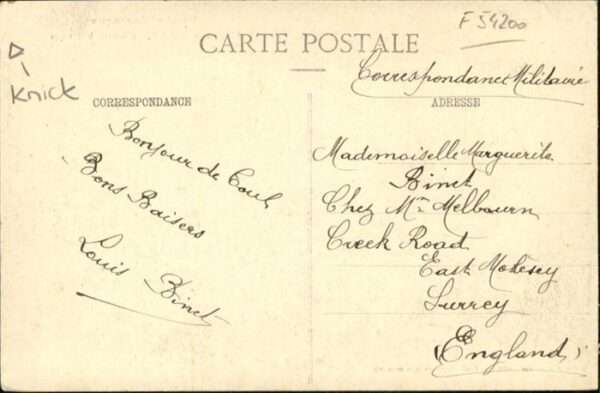 F 54200
CARTE POSTALE
Knick
Correspondance Militaire
CORRESPONDANCE
ADRESSE
Bonjour de Toul
Bons Baisers
Louis Binet
Mademoiselle Marguerite
Binet
Chez Mr Melbourn
Creek Road
East Molesey
Surrey
(England)